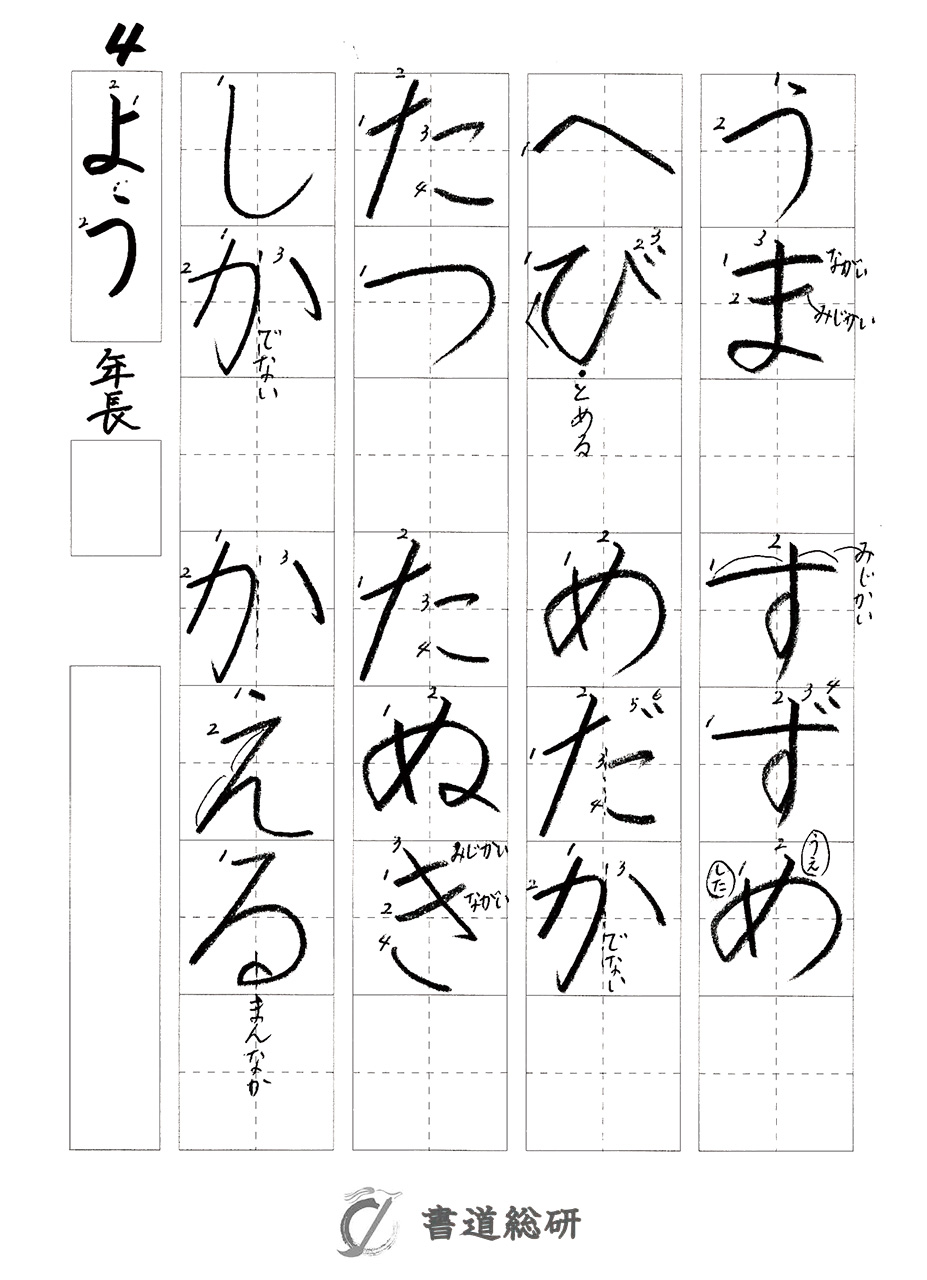 うま すずめ
ながい
みじかい
みじかい
した
うえ
へび めだか
とめる
でない
たつ たぬき
みじかい
ながい
しか かえる
でない
まんなか
4
ようご
年長
書道総研